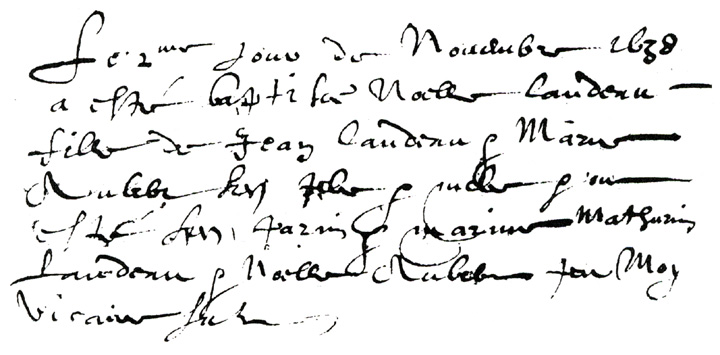 Le 2me jour de Novembre 1638
a esté baptisée Noelle Landeau
fille de Jean Landeau & Marie
Aubebe ses & &
esté ses parin & marine Mathurin
Landeau & Noelle Aubebe par Moy
Vicaire